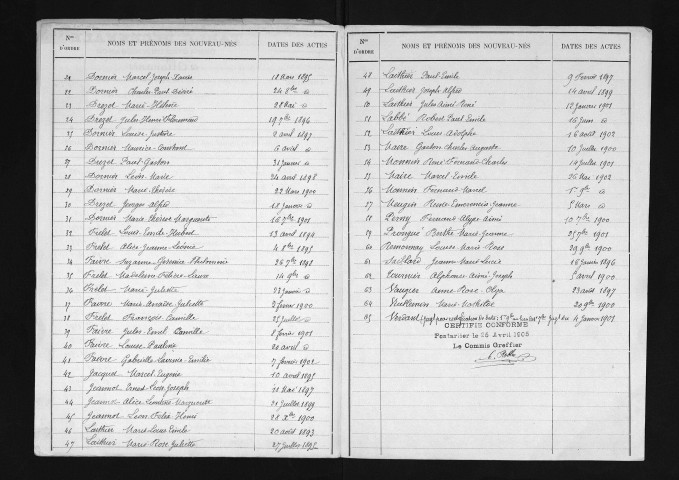 Nos D'ORDRE NOMS ET PRÉNOMS DES NOUVEAU-NÉS DATES DES ACTES
21 Bornier Marcel Joseph Louis 18 Mars 1895
22 Bornier Charles Paul Désiré 24 8bre d
23 Drezet Marie Hélène 28 Mai d
24 Drezet Jules Henri 19 7bre 1896
25 Bornier Louise Justine 2 avril 1897
26 Bornier Maurice Constant 6 avril d
27 Drezet Paul Gaston 31 Janvier d
28 Bornier Léon Marie 24 avril 1898
29 Bornier Marie Thérèse 22 Mars 1900
30 Drezet Georges Alfred 18 Janvier d
31 Bornier Marie Thérèse Marguerite 16 7bre 1901
32 Frelet Louis Emile Hubert 13 avril 1894
33 Frelet Alice Jeanne Léonie 4 8bre 1895
34 Faivre Suzanne Germaine Philomène 26 7bre 1898
35 Frelet Madeleine 14 9bre d
36 Frelet Marie Juliette 23 Janvier d
37 Faivre Marie Juliette 2 février 1900
38 Frelet François Camille 25 Juillet d
39 Faivre Jules Camille 8 février 1901
40 Faivre Louise Pauline 20 avril d
41 Faivre Gabrielle Emilie 7 février 1902
42 Jacquet Marcel Eugène 10 avril 1895
43 Jeannot Ernest Léon Joseph 21 Mai 1897
44 Jeannot Alice Marguerite 21 Juillet 1899
45 Jeannot Léon Félix Henri 28 Xbre 1900
46 Laithier Marie Louis Emile 20 août 1893
47 Laithier Marie Rose Juliette 27 Juillet 1895
Nos D'ORDRE NOMS ET PRÉNOMS DES NOUVEAU-NÉS DATES DES ACTES
48 Laithier Paul Emile 9 février 1897
49 Laithier Joseph Alfred 14 avril 1899
50 Laithier Jules Aimé René 12 Janvier 1901
51 Labbé Robert Paul Emile 16 Juin d
52 Laithier Louis Adolphe 16 août 1902
53 Maire Gaston Charles Auguste 10 Juillet 1900
54 Monnier René Fernand Charles 14 Juillet 1901
55 Maire Marcel Emile 26 Mai 1902
56 Monnier Fernand Marcel 5 9bre d
57 Mougin Jeanne 5 Mars d
58 Perny Fernand Aimé 10 7bre 1900
59 Berthe Marie Jeanne 25 7bre 1901
60 Louise Marie Rose 29 9bre 1900
61 Jeanne Marie Lucie 16 Janvier 1896
62 Tournier Alphonse Aimé Joseph 5 avril 1900
63 Anne Rose Olga 23 août 1897
64 Vuillemin Marie Mathilde 20 9bre 1900
65 4 Janvier 1901
CERTIFIÉ CONFORME
Pontarlier le 25 Avril 1905
Le Commis Greffier